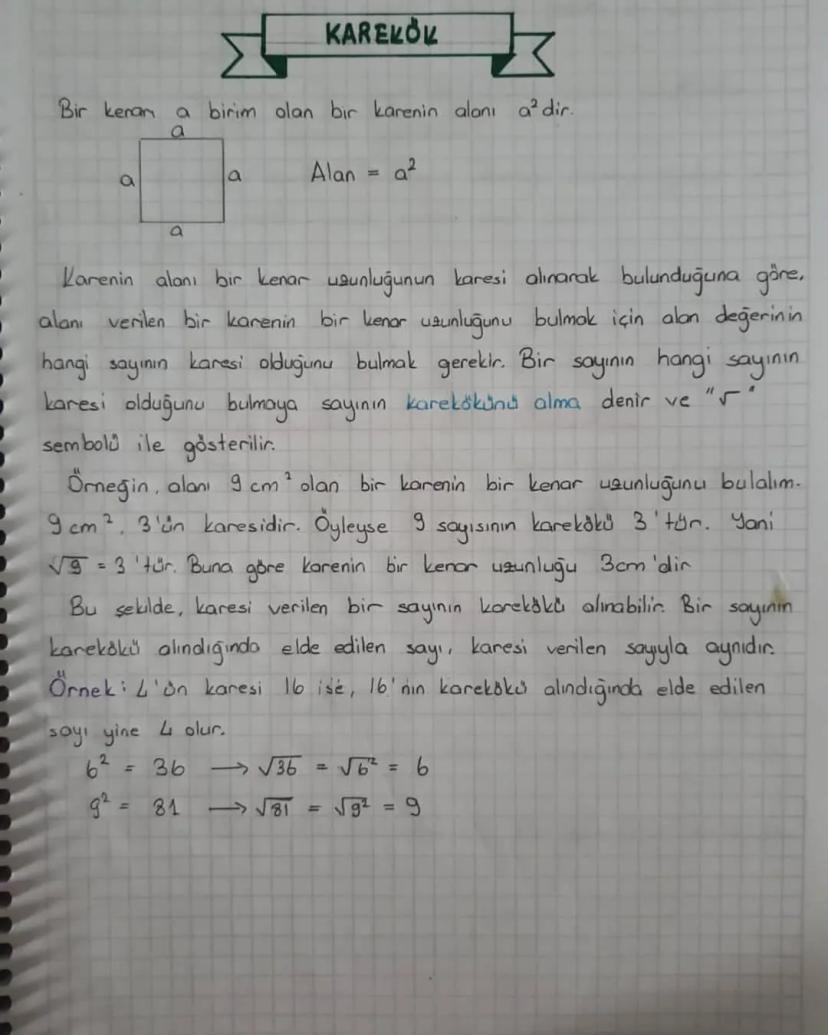 KAREKÖK
Bir kenarı a birim olan bir karenin alanı a² dir.
a
a
a
Alan = a²
a
Karenin alanı bir kenar uzunluğunun karesi alınarak bulunduğuna göre,
alanı verilen bir karenin bir kenar uzunluğunu bulmak için alan değerinin
hangi sayının karesi olduğunu bulmak gerekir. Bir sayının hangi sayının
karesi olduğunu bulmaya sayının karekökünü alma denir ve "√"
sembolü ile gösterilir.
Örneğin, alanı 9 cm² olan bir karenin bir kenar uzunluğunu bulalım.
9 cm², 3'ün karesidir. Öyleyse 9 sayısının karekökü 3'tür. Yani
√9 = 3'tür. Buna göre karenin bir kenar uzunluğu 3cm'dir
Bu şekilde, karesi verilen bir sayının karekökü alınabilir. Bir sayının
karekökü alındığında elde edilen sayı, karesi verilen sayıyla aynıdır.
Örnek: 4'ün karesi 16 ise, 16'nın karekökü alındığında elde edilen
sayı yine 4 olur.
6² = 36 → √36 = √6² = 6
9² = 81 → √81 = √9² = 9